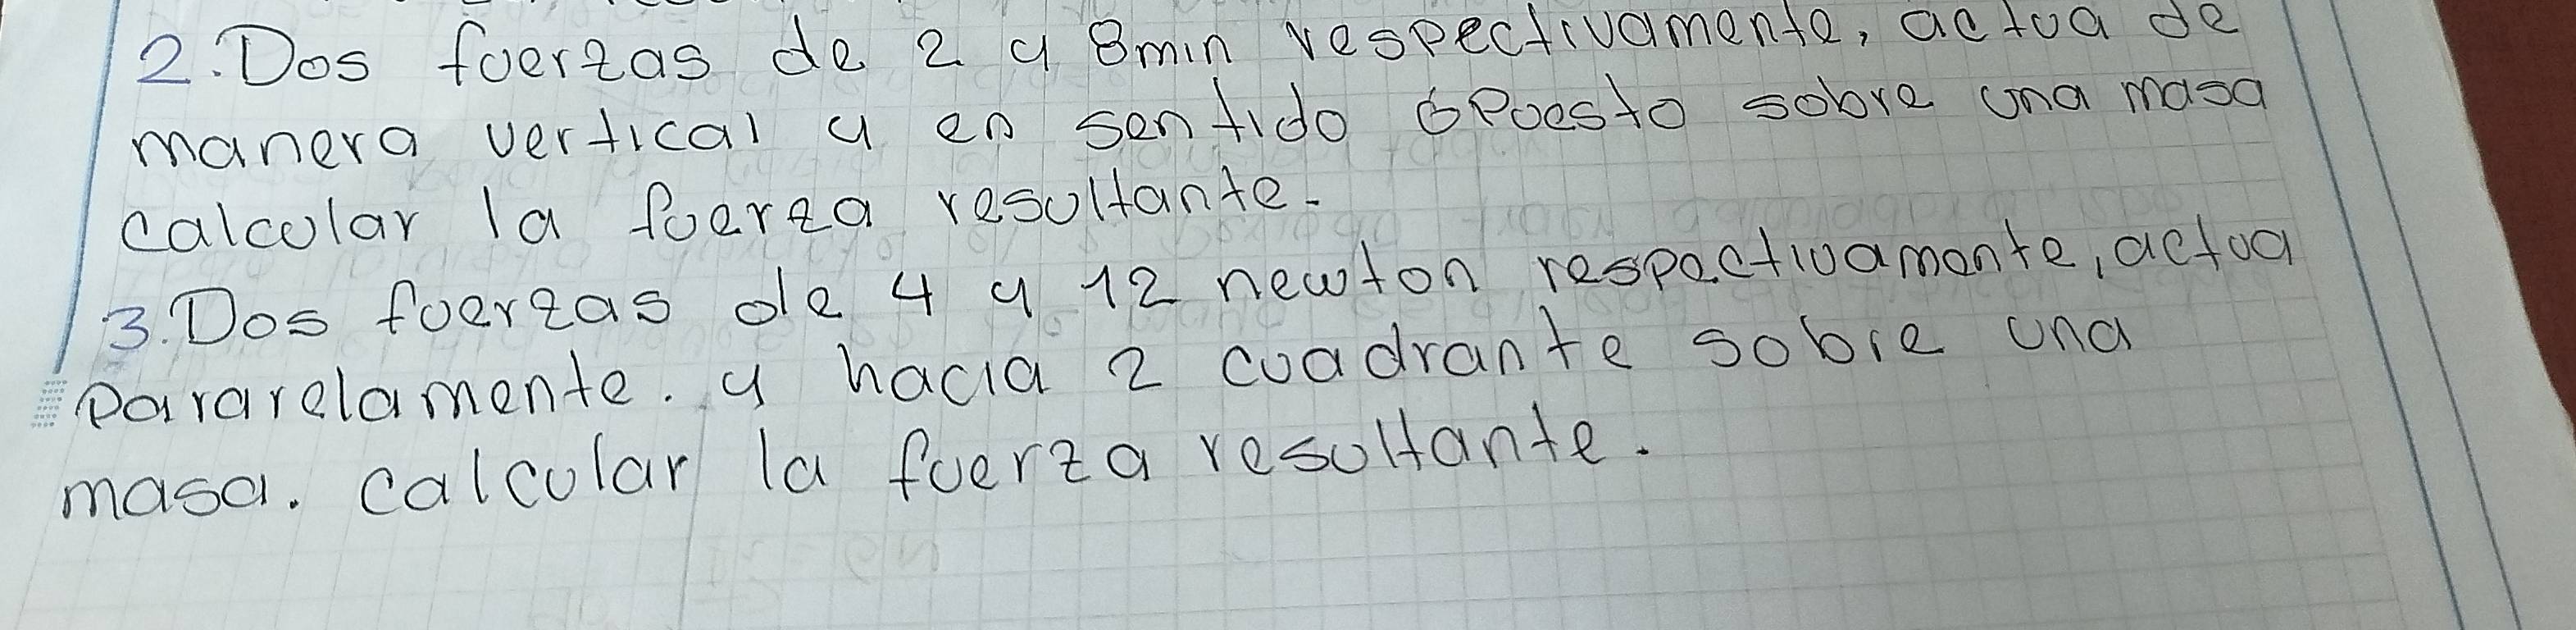 2. Dos fuerzas de 2 y 8min respectivamente, actua de
manera vertical y en sentido opuesto sobre una masa
calcular la fuerza resultante.
3. Dos fuerzas de 4 y 12 newton respectivamente, actua
pararelamente. y hacia 2 cuadrante sobre una
masa. calcular la fuerza resultante.